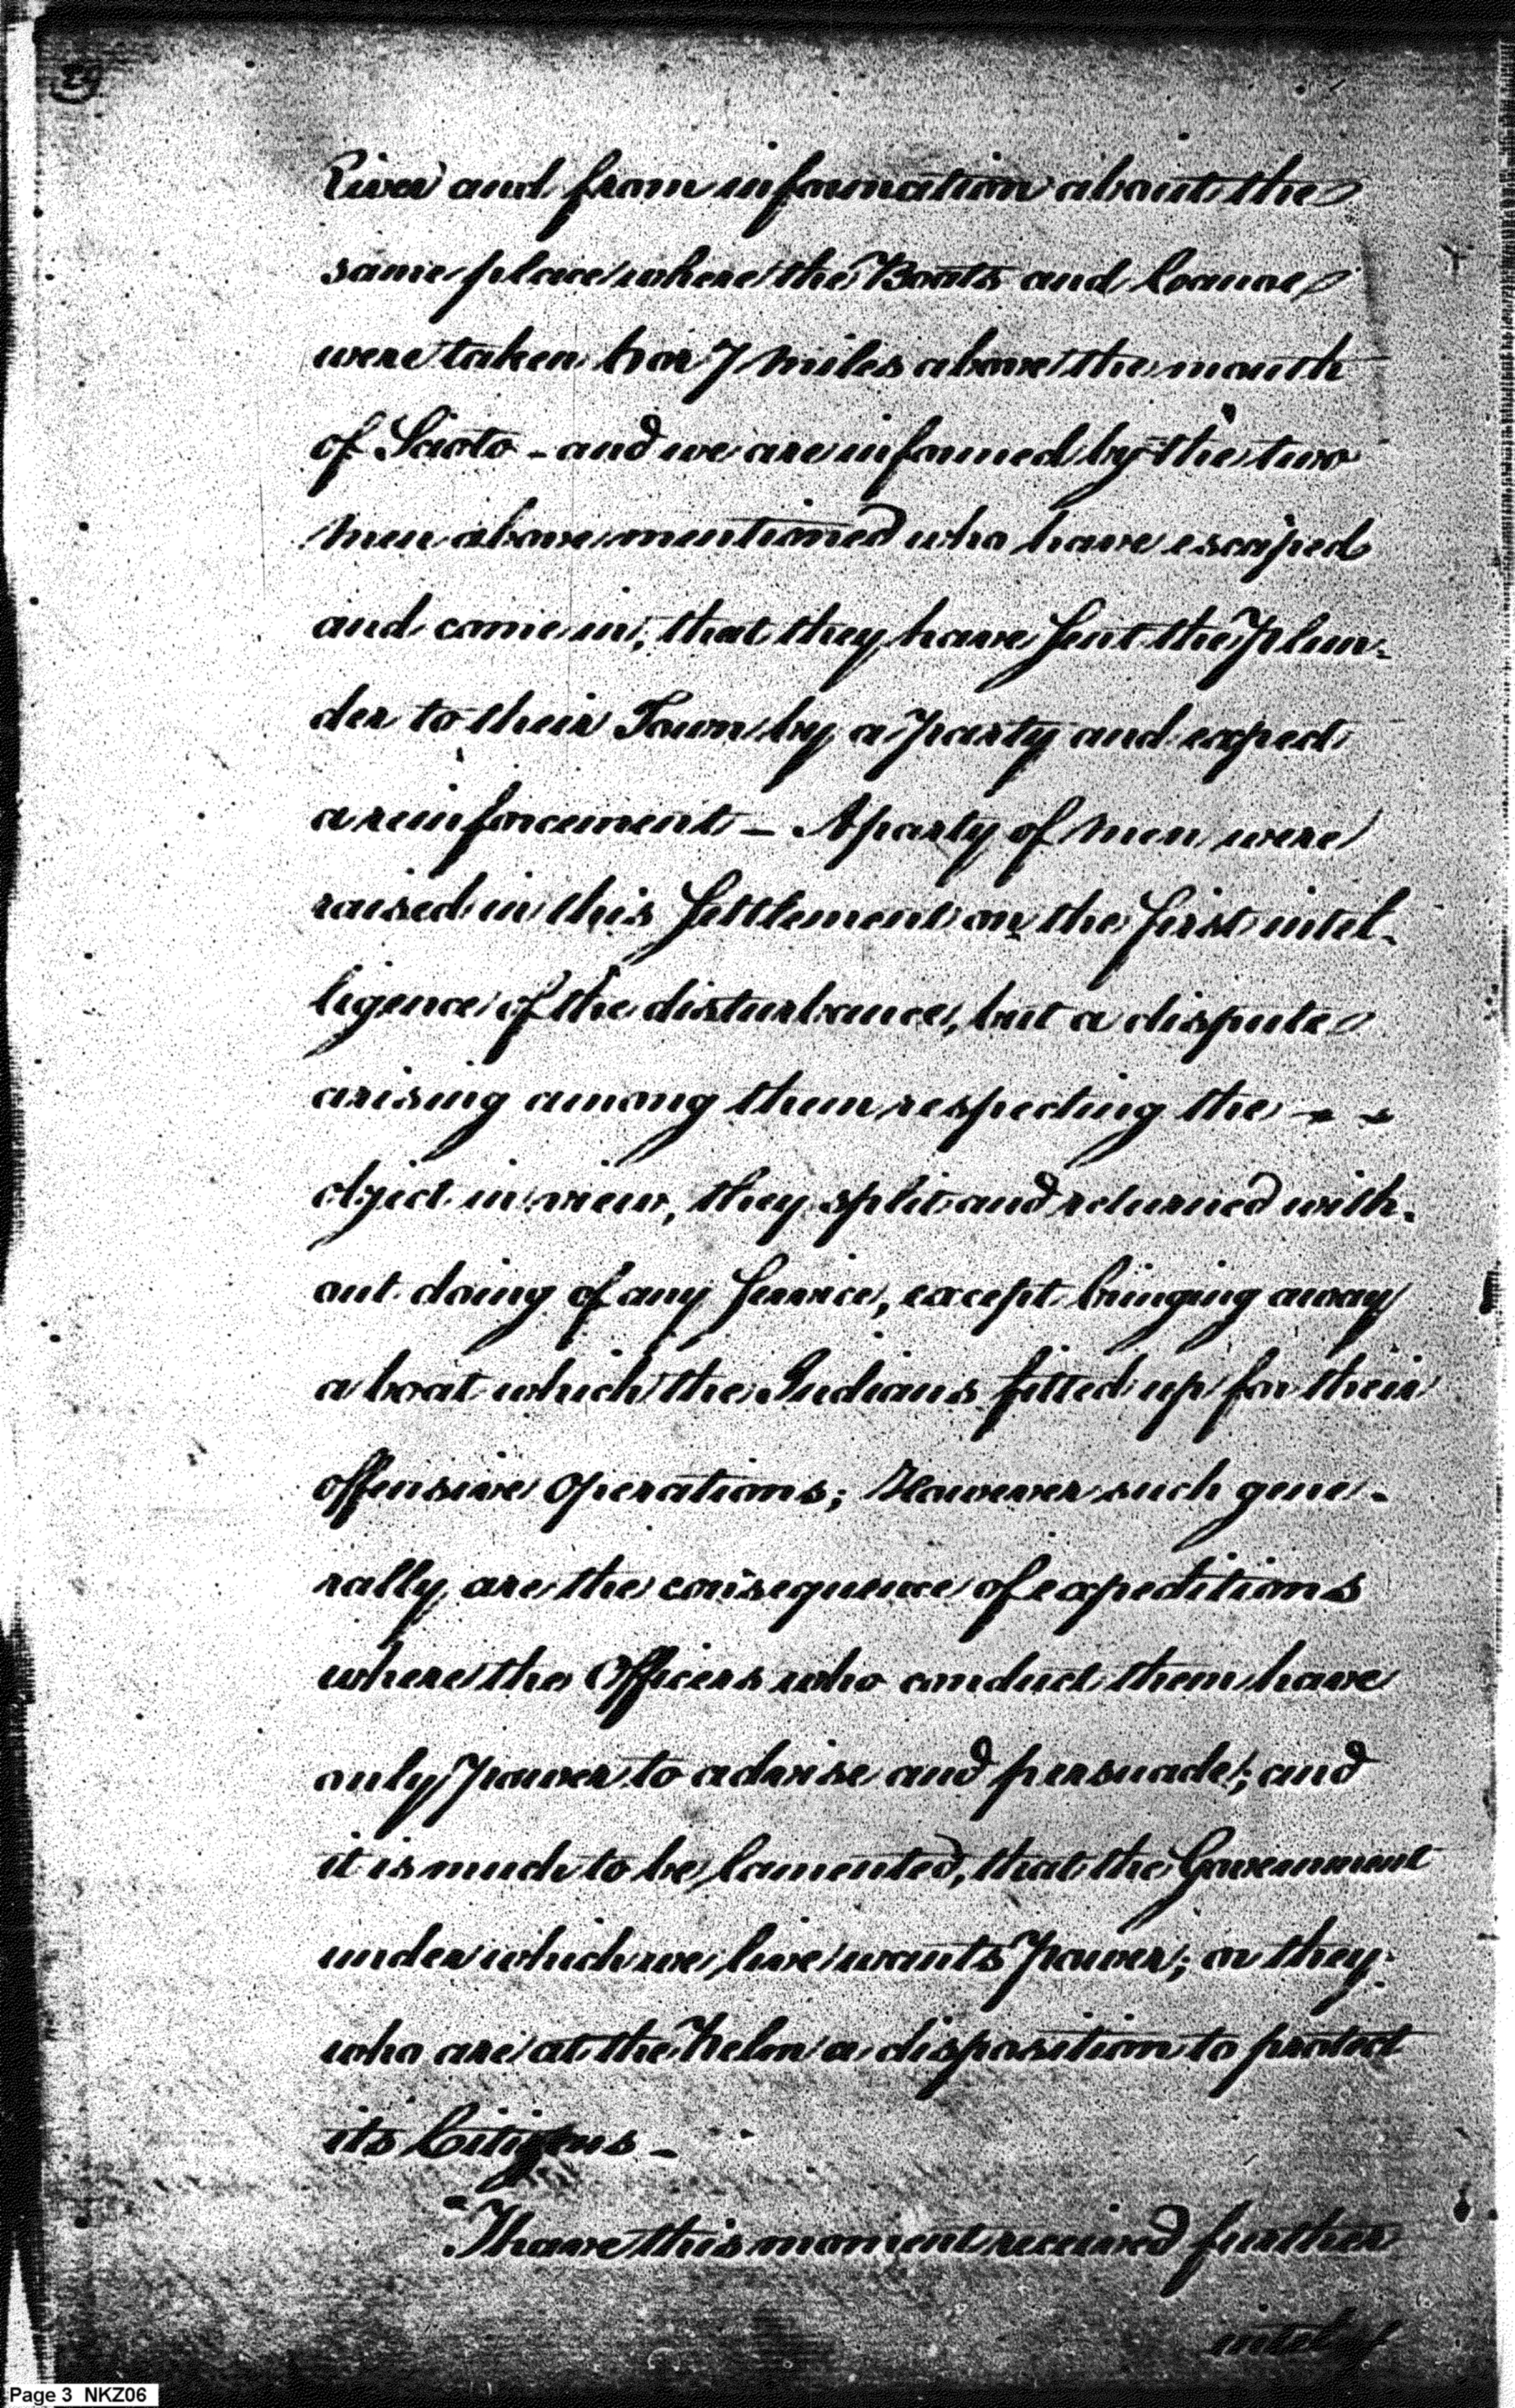 River and from information about the
same place where the Boats and Canoe
were taken 6 or 7 miles above the mouth
of Scioto - and we are informed by the two
men above mentioned who have escaped
and come in; that they have sent the Plun-
der to their Town by a Party and expect
a reinforcement - A party of men were
raised in this Settlement on the first intel-
ligence of the disturbance, but a dispute
arising among them respecting the - -
object in view, they split and returned with-
out doing of any Service, except bringing away
a boat which the Indians fitted up for their
offensive operations; However such gene-
rally are the consequence of expeditions
where the Officers who conduct them have
only Power to advise and persuade; and
it is much to be lamented, that the Government
under which we live wants Power; or they
who are at the Helm a disposition to protect
its Citizens -
"I have this moment received further
Page 3 NKZ06